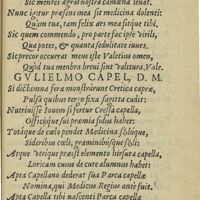 Sic mentes ægras nostra camœna leuat.
Nunc igitur præsens mea sit medicina dolenti:
Quàm tua, tam felix ars mea sitque tibi.
Sic quem commendo, pro parte fac ipse virili,
Qua potes, & quanta sedulitate iuues.
Sic precor occurrat meus iste Valetius omen,
Quòd tua membra breui sint valitura, Vale.
GVLIELMO CAPEL, D. M.
Si dictamna feræ monstrârunt Cretica capræ,
Pulsa quibus tergo fixa sagitta cadit:
Nutriuisse Iouem si fertur Cressa capella,
Officijque sui præmia sidus habet:
Totáque de cœlo pendet Medicina, solóque,
Sideribus cœli, graminibúsque soli:
Atque vtrique præest elemento hirsuta capella,
Loricam cuius de cute alumnus habet:
Apta Capellano dederat sua Parca capellæ
Nomina, qui Medicus Regius antè fuit.
Apta Capella tibi nascenti Parca capellæ